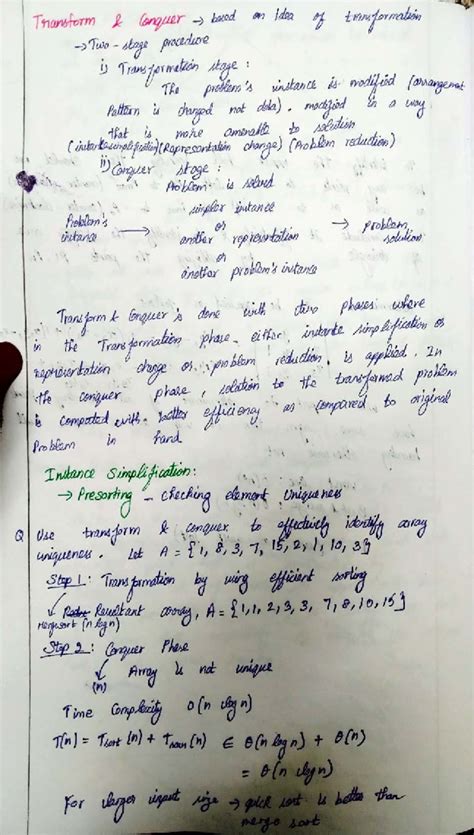 Transform & Conquer → based on idea of transformation
→ Two-stage procedure
i) Transformation stage :
The problem's instance is modified (arrangement
Pattern is changed not data). modified in a way
that is more amenable to solution
(instance simplification) (Representation change) (Problem reduction)
ii) Conquer stage :
Problem is solved
Problem's instance → simpler instance or another representation or another problem's instance → problem solution
Transform & Conquer is done with two phases where
in the Transformation phase, either instante simplification or
representation change or problem reduction is applied. In
the conquer phase, solution to the transformed problem
is computed with better efficiency as compared to original
Problem in hand
Instance Simplification:
→ Presorting - checking element uniqueness
Q Use transform & conquer to effectively identify array
uniqueness. Let A = {1, 8, 3, 7, 15, 2, 1, 10, 3}
Step 1: Transformation by using efficient sorting
Resultant array, A = {1,1,2,3,3,7,8,10,15}
mergesort (n log n)
Step 2: Conquer Phase
Array is not unique
(n)
Time Complexity O(n log n)
T(n) = Tsort (n) + Tscan (n) ∈ θ(n log n) + θ(n)
= θ(n log n)
For larger input size → quick sort is better than
merge sort